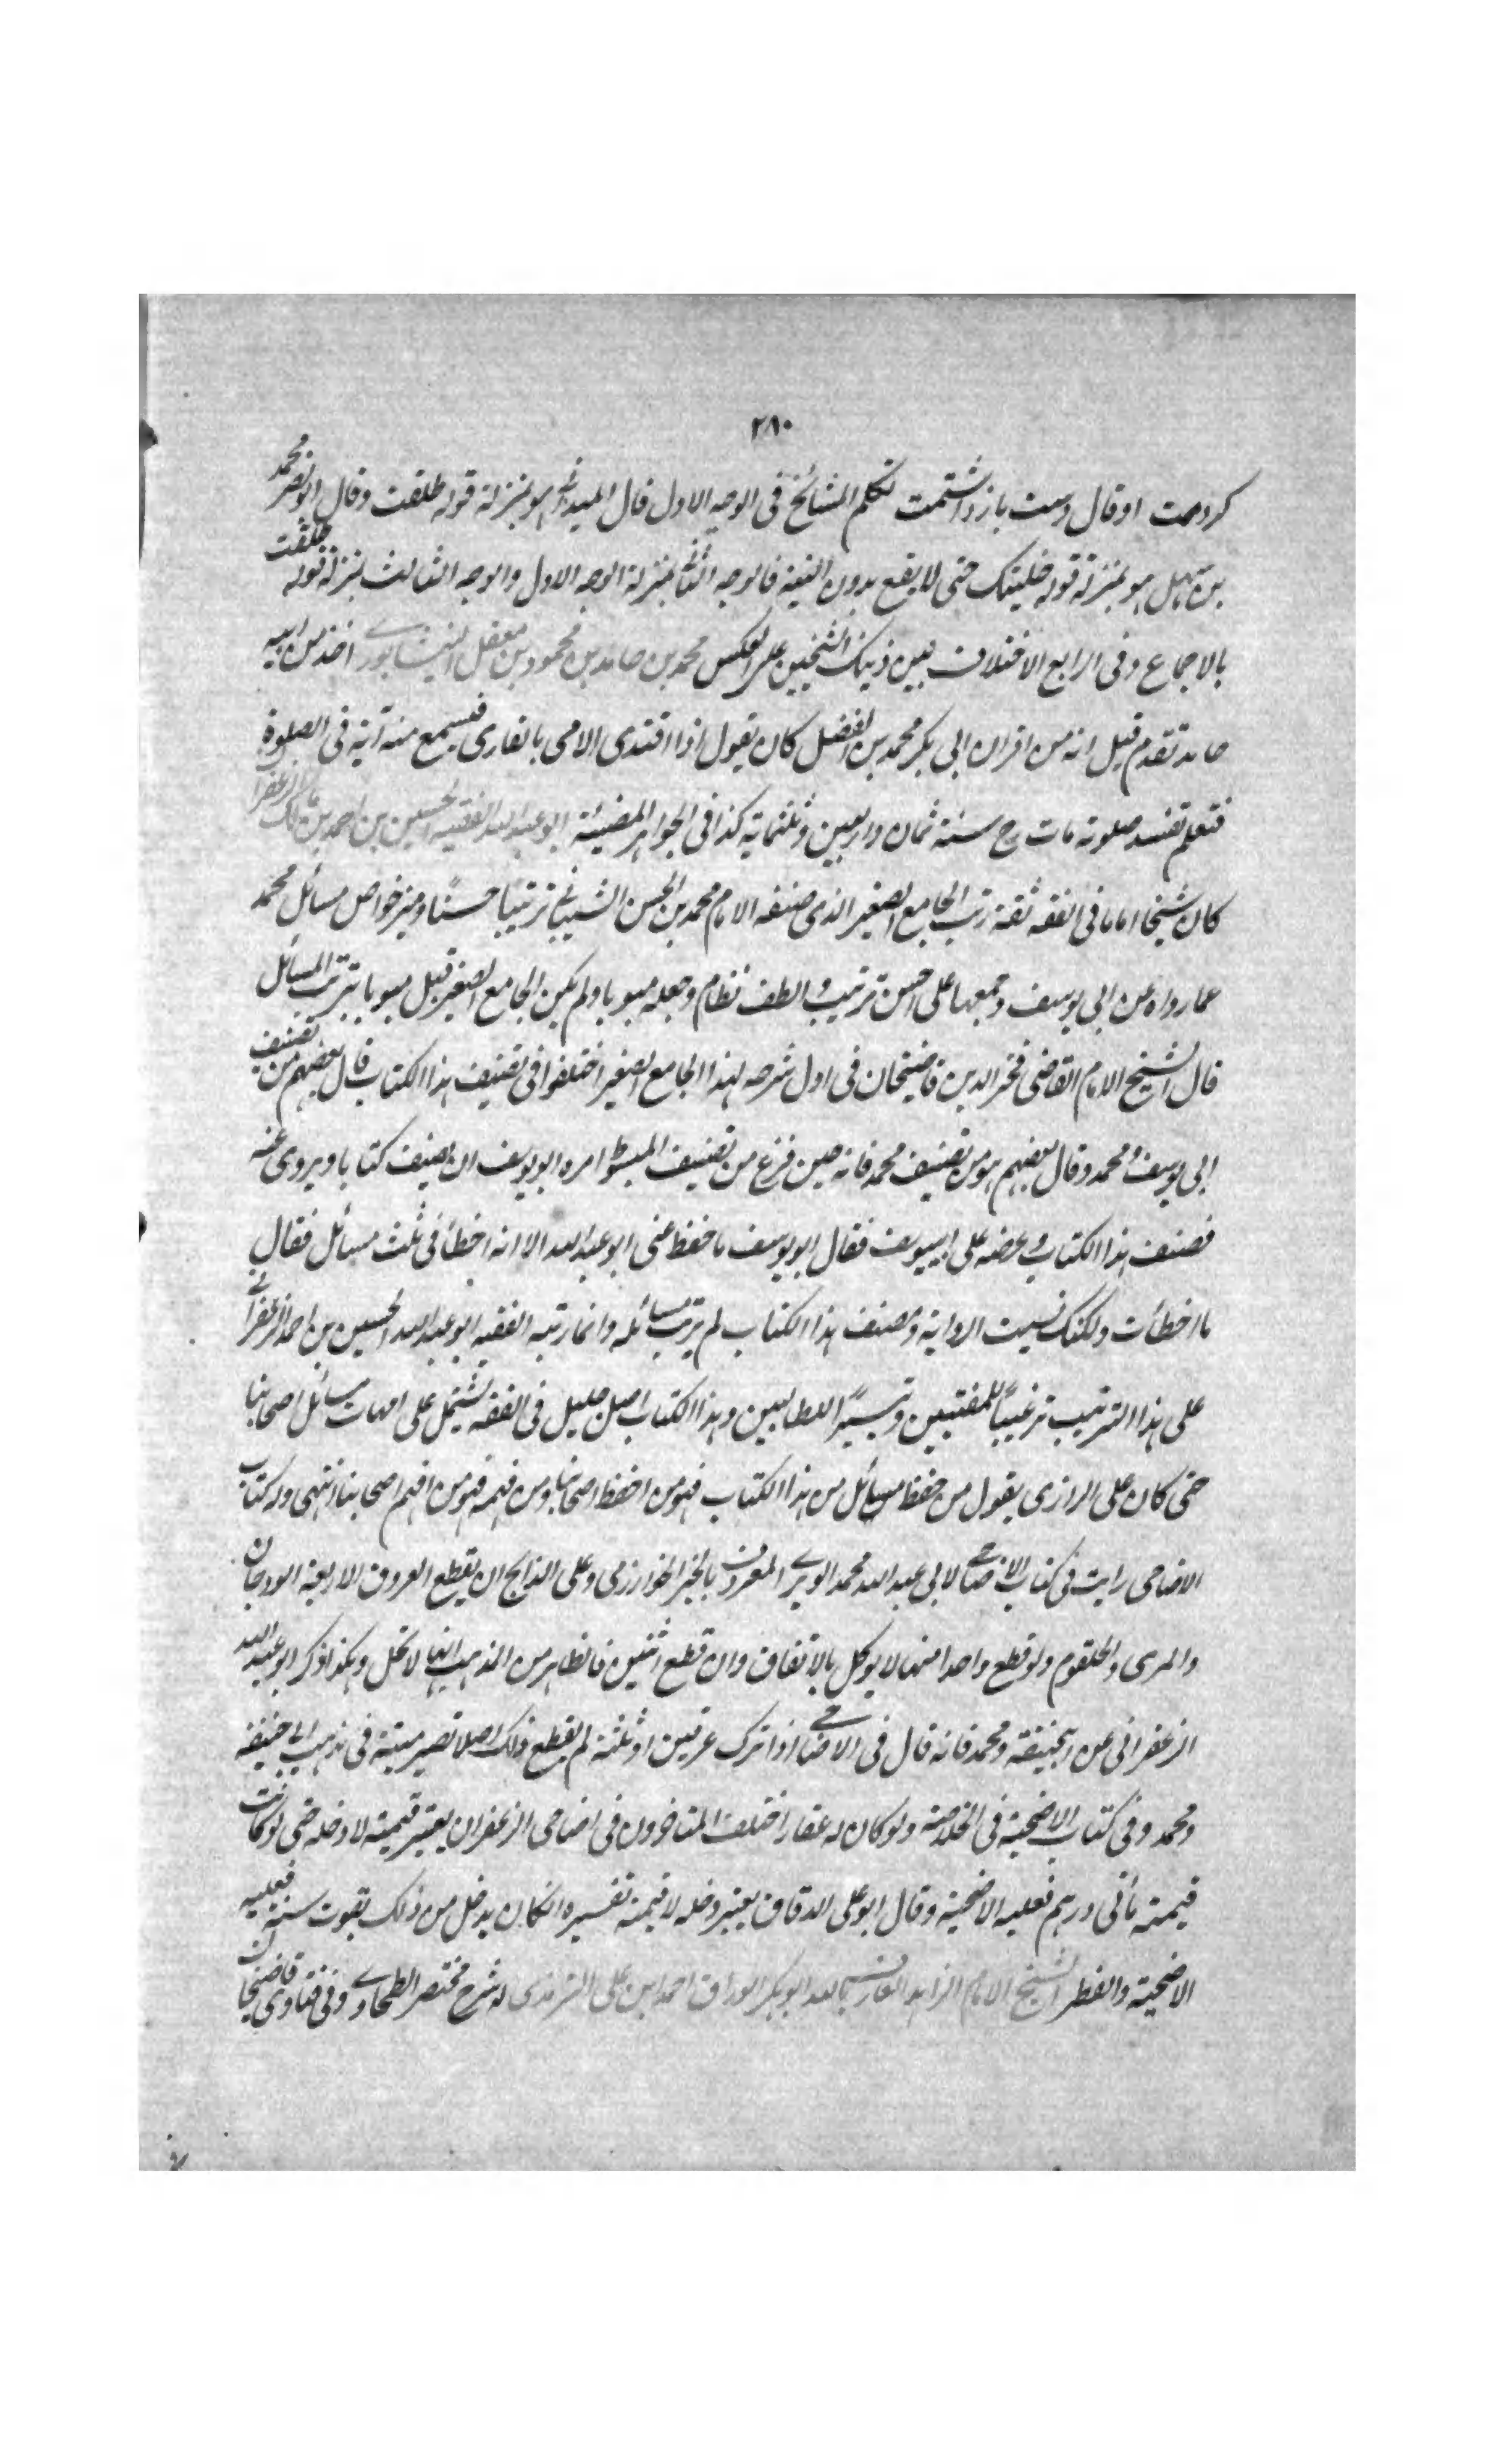 ٢٨٠
كردمت او قال دست باز داشتمت تكلم المشائخ فى الوجه الاول قال الميدانى هو بمنزلة قوله طلقت وقال ابو نصر محمد
بن سهل هو بمنزلة قوله خليتك حتى لا يقع بدون النية فالوجه الثانى بمنزلة الوجه الاول والوجه الثالث بمنزلة قوله طلقت
بالاجماع وفى الرابع الاختلاف بين ذينك الشيخين على العكس محمد بن حامد بن محمود بن معقل النيسابورى اخذ من ابيه
حامد تقدم قيل انه من اقران ابى بكر محمد بن الفضل كان يقول اذا اقتدى الامى بالقارى فيسمع منه آية فى الصلوة
فتعلم تفسد صلوته مات رح سنة ثمان واربعين وثلثماية كذا فى الجواهر المضيئة ابو عبد الله الفقيه الحسين بن احمد بن مالك الزعفرا
كان شيخا اماما فى الفقه ثقة رتب الجامع الصغير الذى صنفه الامام محمد بن الحسن الشيبانى ترتيبًا حسنًا وميز خواص مسائل محمد
عما رواه عن ابى يوسف وجمعها على احسن ترتيب والطف نظام وجعله مبوبا ولم يكن الجامع الصغير قبل مبوبا بترتب المسائل
قال الشيخ الامام القاضى فخر الدين قاضيخان فى اول شرحه لهذا الجامع الصغير اختلفوا فى تصنيف هذا الكتاب قال بعضهم من تصنيف
ابى يوسف ومحمد وقال بعضهم هو من تصنيف محمد فانه حين فرغ من تصنيف المبسوط امره ابو يوسف ان يصنف كتابا ويروى عنه
فصنف هذا الكتاب وعرضه على ابيوسف فقال ابو يوسف ما حفظ عنى ابو عبد الله الا انه اخطأ فى ثلث مسائل فقال
ما اخطأت ولكنك نسيت الرواية ومصنف هذا الكتاب لم يرتب مسائله وانما رتبه الفقيه ابو عبد الله الحسين بن احمد الزعفرانى
على هذا الترتيب ترغيبًا للمفتيين وتيسيرًا للطالبين وهذا الكتاب اصل جليل فى الفقه يشتمل على امهات مسائل اصحابنا
حتى كان على الرازى يقول من حفظ مسائل من هذا الكتاب فهو من احفظ اصحابنا ومن فهمه فهو من افهم اصحابنا انتهى وله كتاب
الاضاحى رايت فى كتاب الاضاحى لابى عبد الله محمد الوبرى المعروف بالخير الخوارزمى وعلى الذابح ان يقطع العروق الاربعة الودجان
والمرى والحلقوم ولو قطع واحدا منها لا يوكل بالاتفاق وان قطع اثنين فالظاهر من المذهب انها لا تحل وهكذا ذكر ابو عبد الله
الزعفرانى عن ابيحنيفة ومحمد فانه قال فى الاضاحى اذا ترك عرقين او ثلثة لم يقطع ذلك اصلا تصير ميتة فى مذهب ابى حنيفة
ومحمد وفى كتاب الاضحية فى الخلاصة ولو كان له عقار اختلف المتاخرون فى اضاحى الزعفران يعتبر قيمته لا دخله حتى لو كانت
قيمته مأتى درهم فعليه الاضحية وقال ابو على الدقاق يعتبر دخله لا قيمته تفسيره انكان يدخل من ذلك بقوت سنة فعليه
الاضحية والفطر الشيخ الامام الزاهد العارف بالله ابو بكر الوراق احمد ابن على الترمذى له شرح مختصر الطحاوى وفى فتاوى قاضيخان